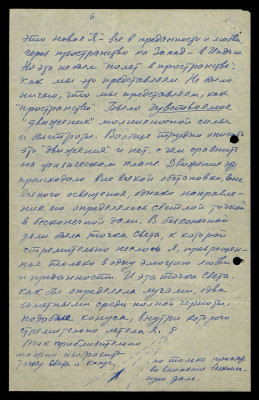 6
это новое Я - все в преданности и любви
через пространство на Запад - в Индию.
Но это не был "полет в пространстве",
как мы это представляем. Не было
ничего, что мы представляем, как
"пространство". Было чувствование
"движения" молниеносной силы
и быстроты. Вообще трудно описать
это "движение" и нет, с чем сравнить
на физическом плане. Движение
происходило вне всякой обстановки, вне
освещения, однако направле-
ние его определялось светлой точкой
в бесконечной дали. В бесконечной
дали была точка Света, к которой
стремительно неслось Я, превращен-
ное только в одну эмоцию любви
и преданности. И эта точка Света
как бы определяла лучами, едва
заметными среди полной черноты
подобие конуса, внутри которого
стремительно летела Я.
Так приблизительно
можно изобразить
точку Света и конус,
но только
дали.